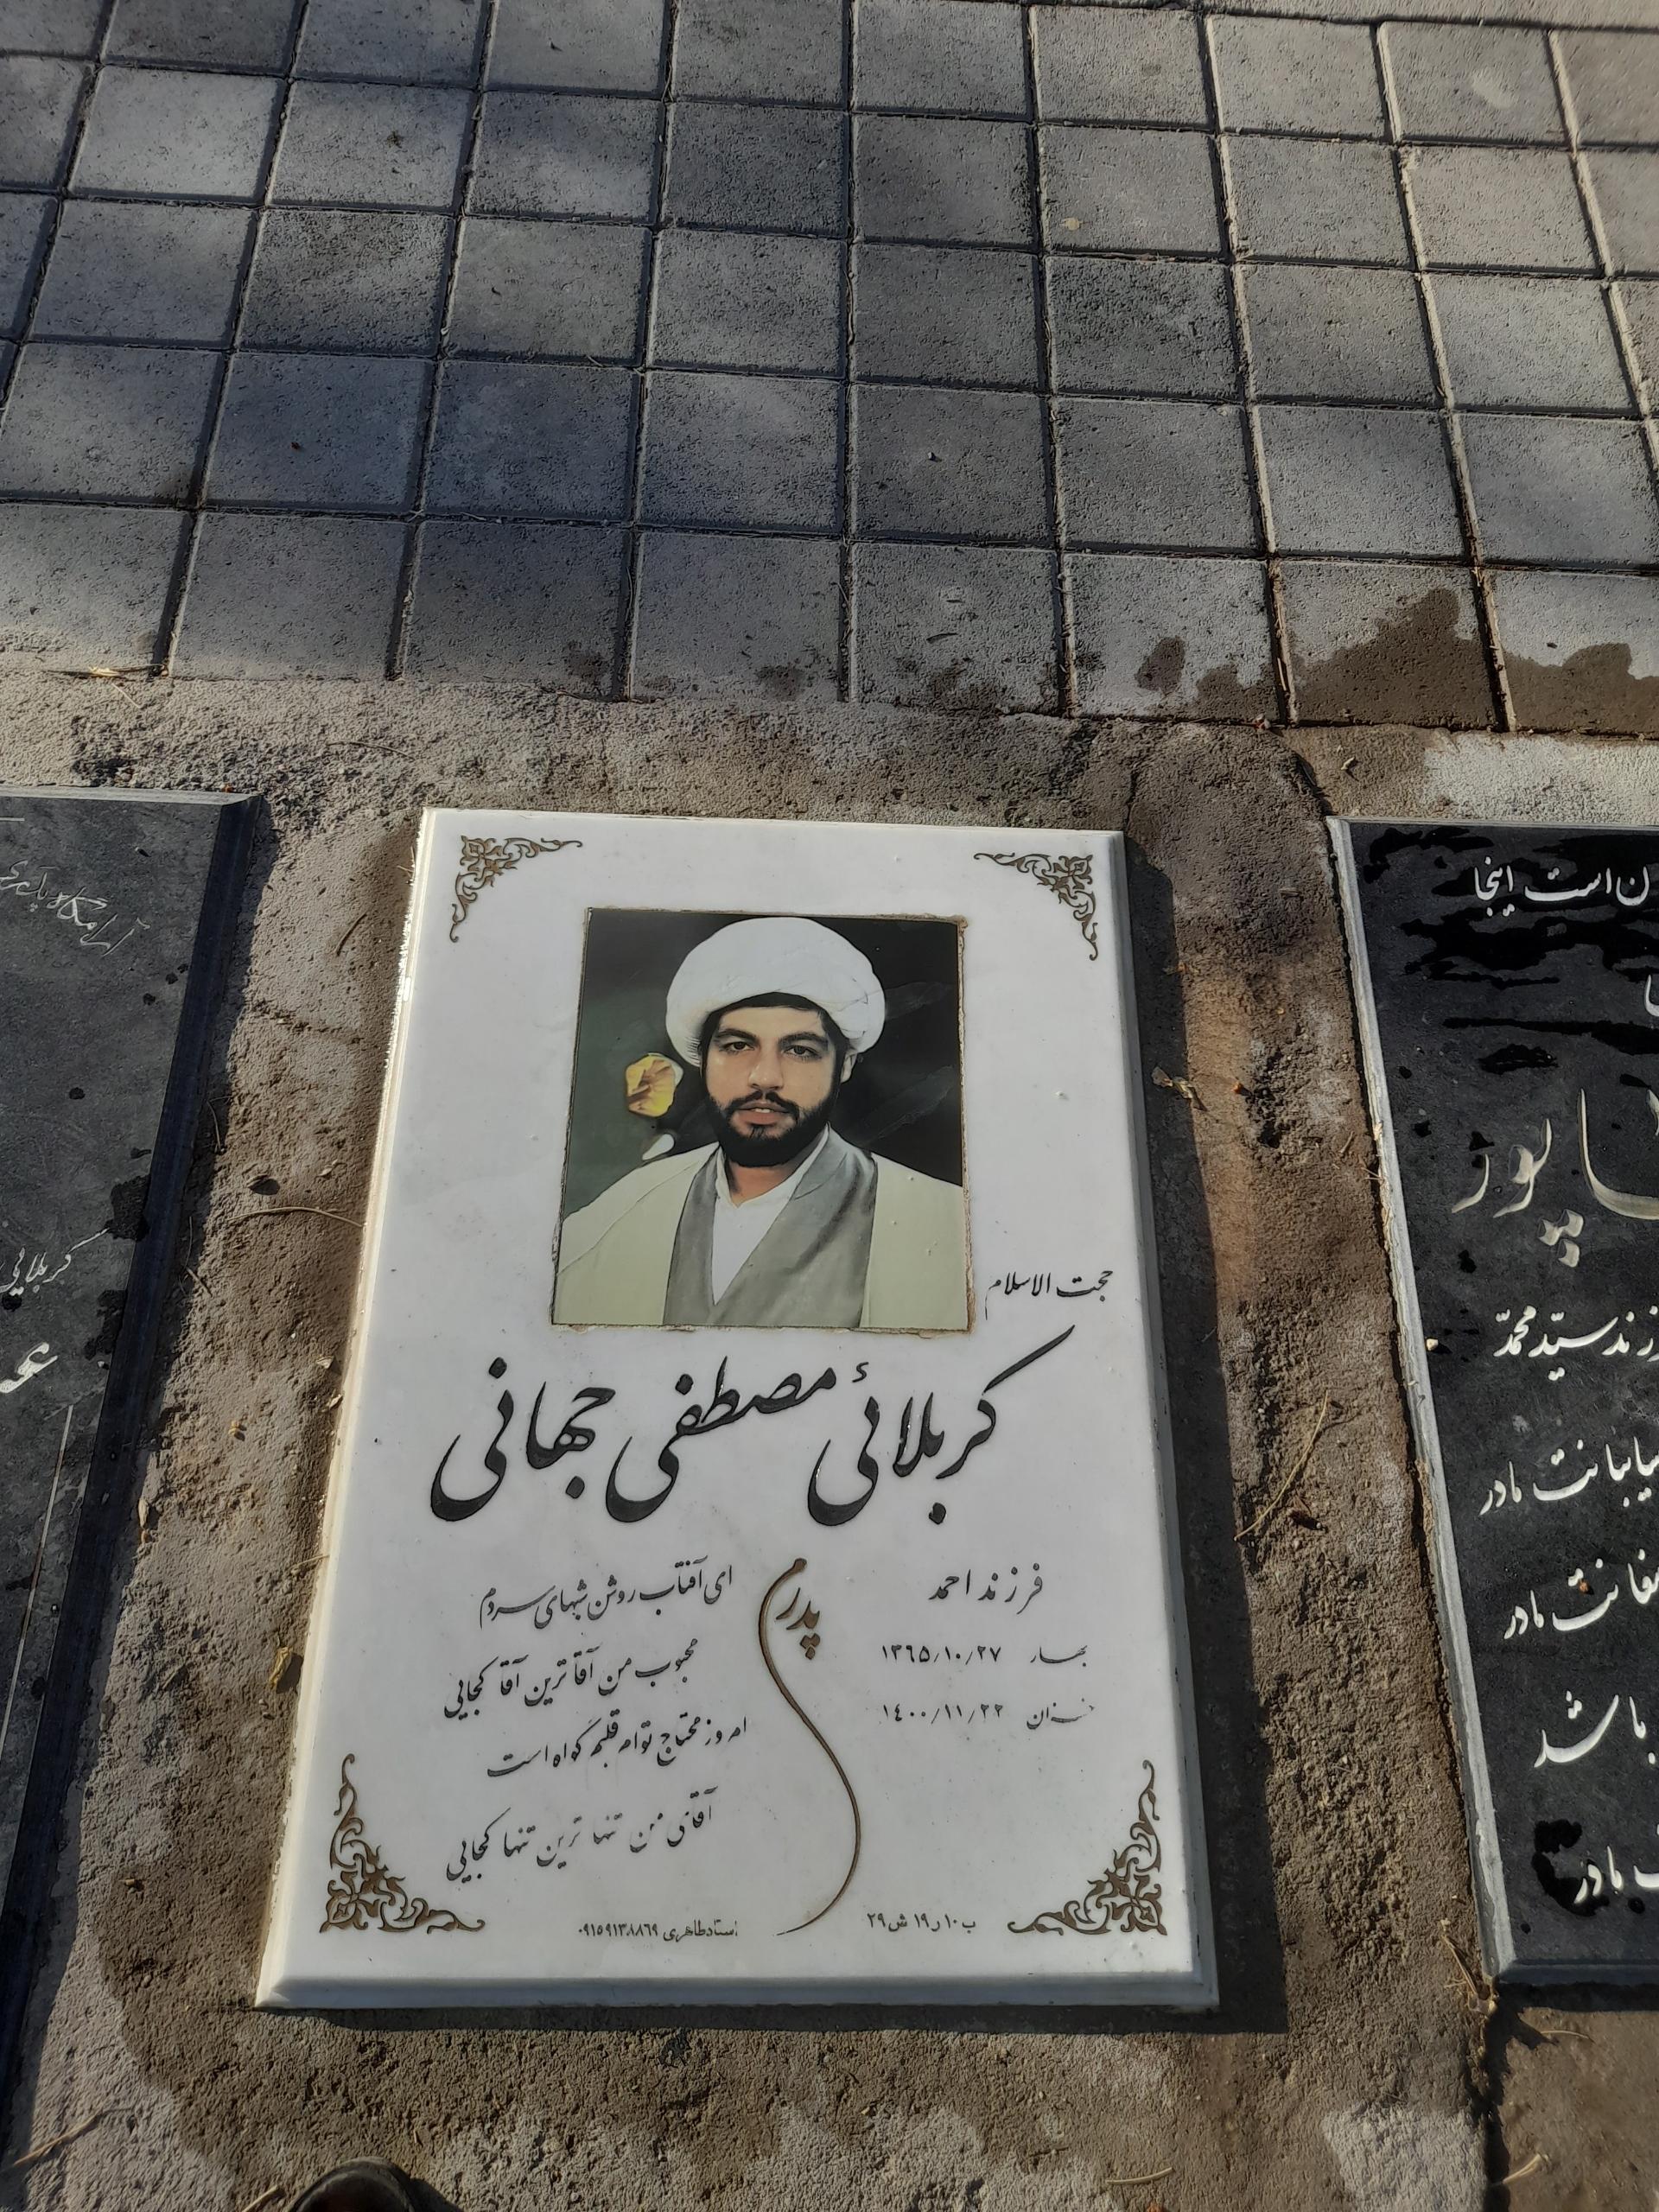 حجت الاسلام
کربلائی مصطفی جهانی
فرزند احمد
بهار ۱۳۶۵/۱۰/۲۷
خزان ۱۴۰۰/۱۱/۲۲
پدرم
ای آفتاب روشن شبهای سردم
محبوب من آقا ترین آقا کجایی
امروز محتاج توام قلبم گواه است
آقای من تنها ترین تنها کجایی
ب۱۰ ر۱۹ ش۲۹
استاد طاهری ۰۹۱۵۹۱۳۸۸۶۹
آرامگاه پدری
کربلایی
ن است اینجا
پور
فرزند سید محمد
مادر
مادر
باشد
مادر